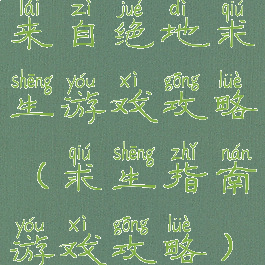 lái zì jué dì qiú
来自绝地求
shēng yóu xì gōng lüè
生游戏攻略
qiú shēng zhǐ nán
(求生指南
yóu xì gōng lüè
游戏攻略)